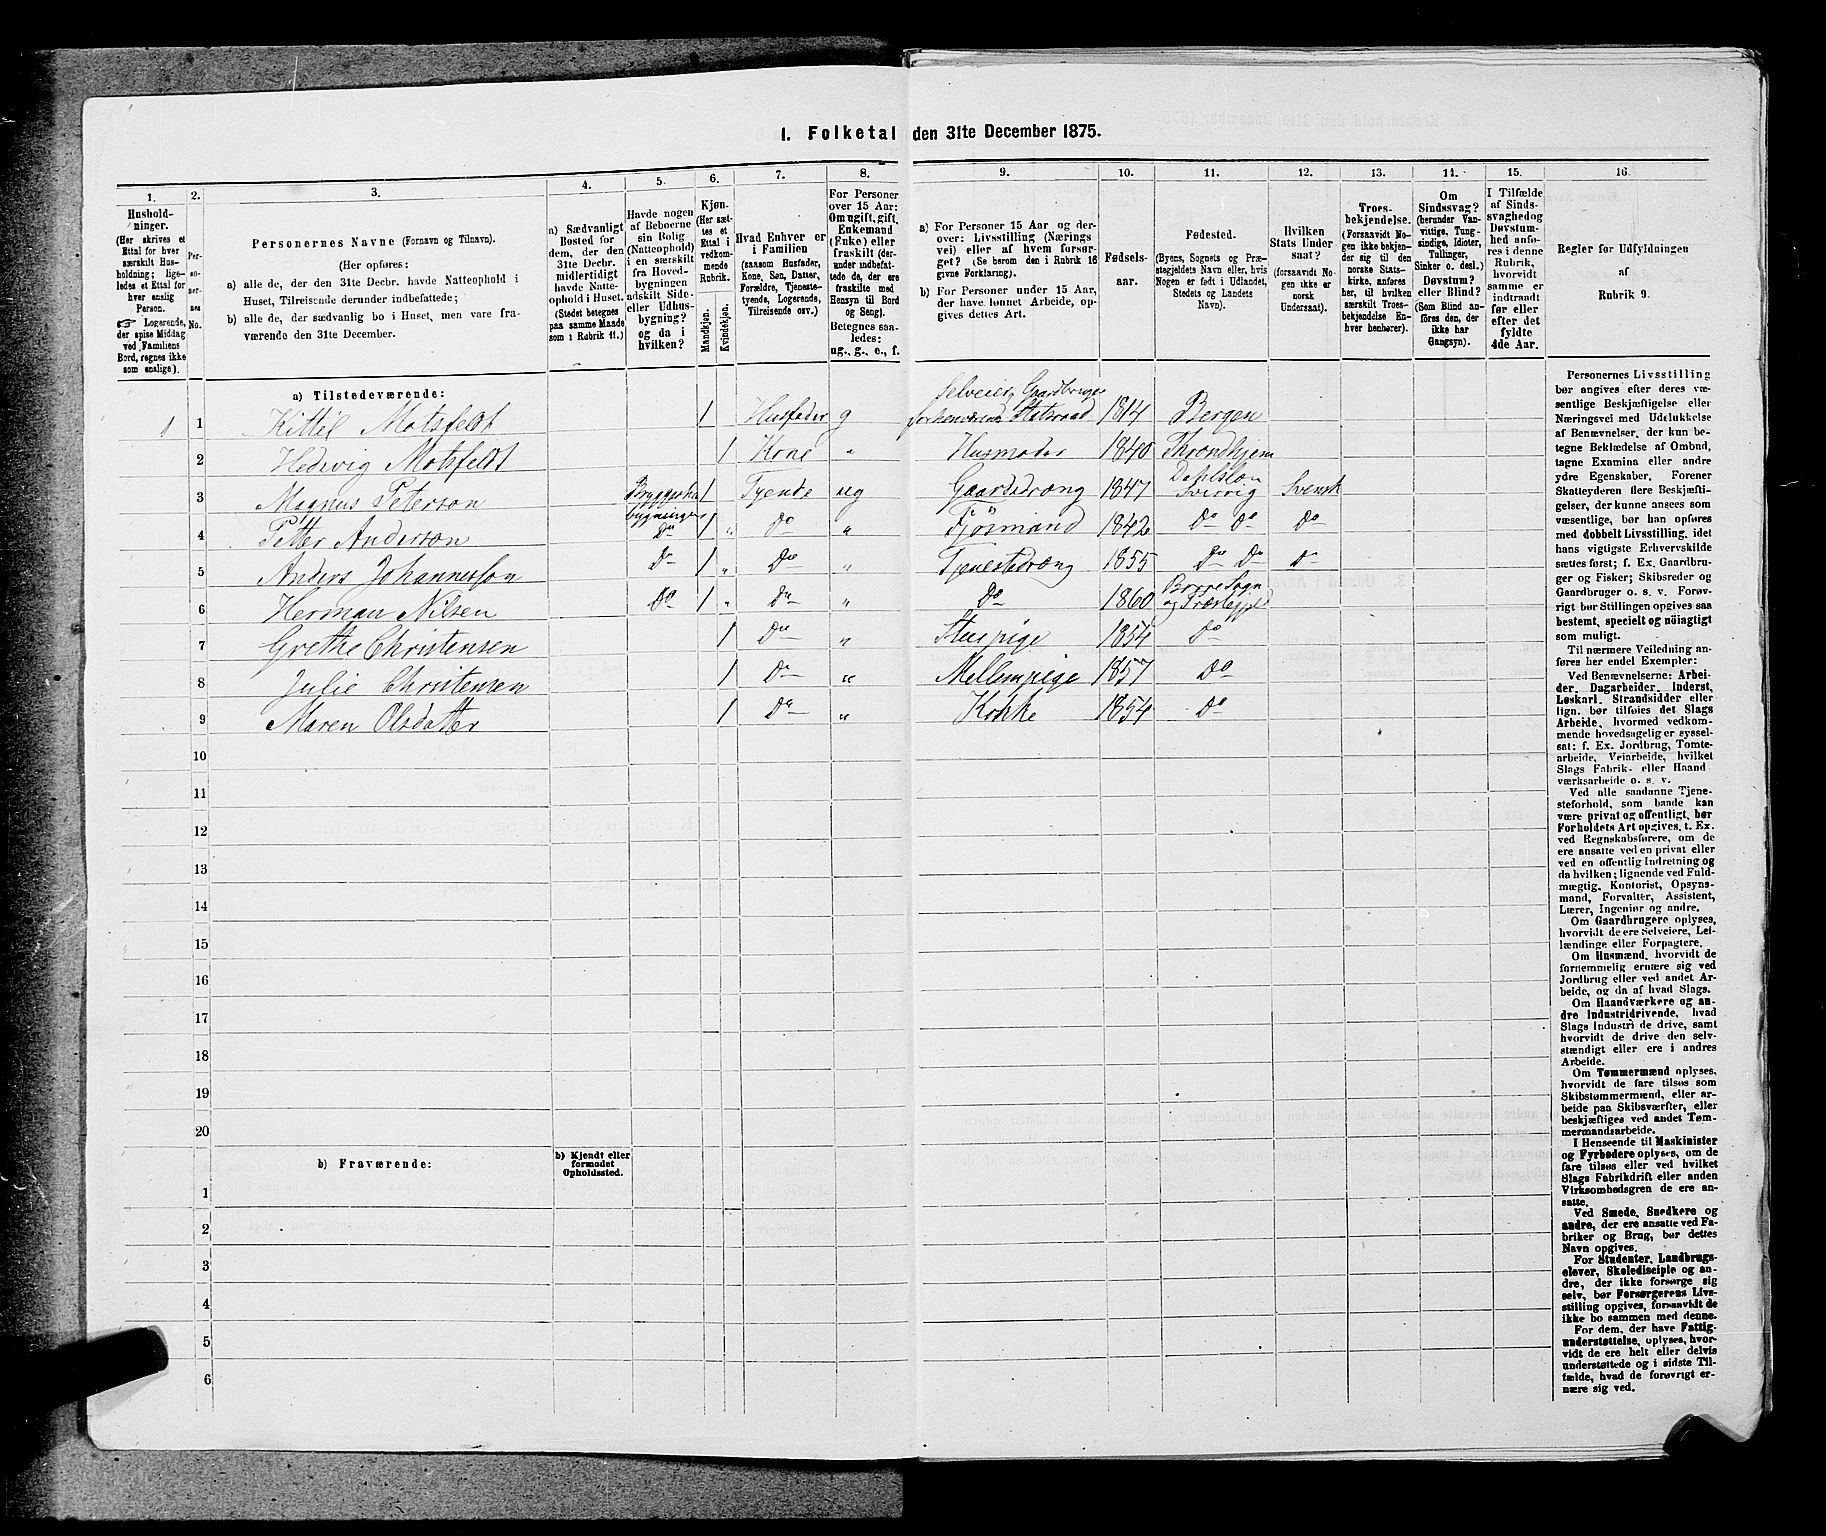 1. Folketal den 31te December 1875.
1.
2.
3.
4.
5.
6.
7.
8.
9.
10.
11.
12.
13.
14.
15.
16
Hushold-
ninger.
(Her skrives et
Ettal for hver
særskilt Hus-
holdning; lige-
ledes et Ettal for
hver enslig
Person.
☞ Logerende,
der spise Middag
ved Familiens
Bord, regnes ikke
som enslige).
Per-
so-
ner-
nes
No.
Personernes Navne (Fornavn og Tilnavn).
(Her opføres:
a) alle de, der den 31te Decbr. havde Natteophold i
Huset, Tilreisende derunder indbefattede;
b) alle de, der sædvanlig bo i Huset, men vare fra-
værende den 31te December.
a) Sædvanligt
Bosted for
dem, der den
31te Decbr.
midlertidigt
havde Natte-
ophold i Huset.
(Stedet betegnes
paa samme Maade
som i Rubrik 11.)
Havde nogen
af Beboerne
sin Bolig
(Natteophold)
i en særskilt
fra Hoved-
bygningen
adskilt Side-
eller Udhus-
bygning?
og da i
hvilken?
Kjøn.
(Her sæt-
tes et
Ettal i
vedkom-
mende
Rubrik.
Mandkjøn.
Kvindekjøn.
Hvad Enhver er
i Familien
(saasom Husfader,
Kone, Søn, Datter,
Forældre, Tjeneste-
tyende, Logerende,
Tilreisende osv.)
For Personer
over 15 Aar:
Om ugift, gift,
Enkemand
(Enke) eller
fraskilt (der-
under indbefat-
tede de, der ere
fraskilte med
Hensyn til Bord
og Seng).
Betegnes saa-
ledes:
ug., g., e., f.
a) For Personer 15 Aar og der-
over: Livsstilling (Nærings
vei) eller af hvem forsør-
get? (Se herom den i Rubrik 16
givne Forklaring).
b) For Personer under 15 Aar,
der have lønnet Arbeide, op-
gives dettes Art.
Fødsels-
aar.
Fødested.
(Byens, Sognets og Præ-
stegjeldets Navn eller, hvis
Nogen er født i Udlandet,
Stedets og Landets
Navn).
Hvilken
Stats Under
saat?
(forsaavidt No-
gen ikke er
norsk
Undersaat).
Troes-
bekjendelse.
(Forsaavidt No-
gen ikke bekjen-
der sig til den
norske Stats-
kirke, anføres
her, til hvilken
særskilt Troes-
bekjendelse En-
hver henhører).
Om
Sindssvag?
(herunder Van-
vittige, Tung-
sindige, Idioter,
Tullinger,
Sinker o. desl.)
Døvstum?
eller Blind?
(Som Blind an-
føres den, der
ikke har
Gangsyn).
I Tilfælde
af Sinds-
svaghed og
Døvstum-
hed anfø-
res i denne
Rubrik,
hvorvidt
samme er
indtraadt
før eller
efter det
fyldte
4de Aar.
Regler for Udfyldningen
af
Rubrik 9.
a) Tilstedeværende:
1 1 Kittil Motzfeldt 1 Husfader g Selveier, Gaardbruger forhenværende Statsraad 1814 Bergen
2 Hedevig Motzfeldt 1 Kone " Husmoder 1840 Throndhjem
3 Magnus Peterson Bryggerhusbygningen 1 Tyende ug Gaardsdreng 1847 Dahlsland Sverrig Svensk
4 Petter Anderson Do 1 " Do " Fjøsmand 1842 Do Do Do
5 Anders Johannesson Do 1 " Do " Tjenestedreng 1855 Do Do Do
6 Herman Nilsen Do 1 " Do " Do 1860 Borre Sogn og Præstegjeld
7 Grethe Christensen 1 Do " Stuepige 1854 Do
8 Julie Christensen 1 Do " Mellempige 1857 Do
9 Maren Olsdatter 1 Do " Kokke 1854 Do
10
11
12
13
14
15
16
17
18
19
20
b) Fraværende:
b) Kjendt eller
formodet
Opholdssted.
1
2
3
4
5
6
Personernes Livsstilling
bør angives efter deres væ-
sentlige Beskjæftigelse eller
Næringsvei med Udelukkelse
af Benævnelser, der kun be-
tegne Beklædelse af Ombud,
tagne Examina eller andre
ydre Egenskaber. Forener
Skatteyderen flere Beskjæfti-
gelser, der kunne ansees som
væsentlige, bør han opføres
med dobbelt Livsstilling, idet
hans vigtigste Erhvervskilde
sættes først; f. Ex. Gaardbru-
ger og Fisker; Skibsreder og
Gaardbruger o. s. v. Forøv-
rigt bør Stillingen opgives saa
bestemt, specielt og nöiagtigt
som muligt.
Til nærmere Veiledning an-
føres her endel Exempler:
Ved Benævnelserne: Arbei-
der, Dagarbeider, Inderst,
Løskarl, Strandsidder eller
lign. bør tilføies det Slags
Arbeide, hvormed vedkom-
mende hovedsagelig er syssel-
sat; f. Ex. Jordbrug, Tomte-
arbeide, Veiarbeide, hvilket
Slags Fabrik- eller Haand
værksarbeide o. s. v.
Ved alle saadanne Tjene-
steforhold, som baade kan
være privat og offentligt, bør
Forholdets Art opgives, t. Ex.
ved Regnskabsførere, om de
ere ansatte ved en privat eller
ved en offentlig Indretning og
da hvilken; lignende ved Fuld-
mægtig, Kontorist, Opsyns-
mand, Forvalter, Assistent,
Lærer, Ingeniør og andre.
Om Gaardbrugere oplyses,
hvorvidt de ere Selveiere, Lei-
lændinge eller Forpagtere.
Om Husmænd, hvorvidt de
fornemmelig ernære sig ved
Jordbrug eller ved andet Ar-
beide, og da af hvad Slags.
Om Haandværkere og an-
dre Industridrivende, hvad
Slags Industri de drive, samt
hvorvidt de drive den selv-
stændigt eller ere i andres
Arbeide.
Om Tømmermænd oplyses,
hvorvidt de fare tilsøs som
Skibstømmermænd, eller ar-
beide paa Skibsværfter, eller
beskjæftiges ved andet Tøm-
mermandsarbeide.
I Henseende til Maskinister
og Fyrbødere oplyses, om de
fare tilsøs eller ved hvilket
Slags Fabrikdrift eller anden
Virksomhedsgren de ere an-
satte.
Ved Smede, Snedkere og
andre, der ere ansatte ved Fa-
briker og Brug, bør dettes
Navn opgives.
For Studenter, Landbrugs-
elever, Skoledisciple og an-
dre, der ikke forsørge sig
selv, bør Forsørgerens Livs-
stilling opgives, forsaavidt de
ikke bo sammen med denne.
For dem, der have Fattig-
understøttelse, oplyses, hvor-
vidt de ere helt eller delvis
understøttede og i sidste Til-
fælde, hvad de forøvrigt er-
nære sig ved.